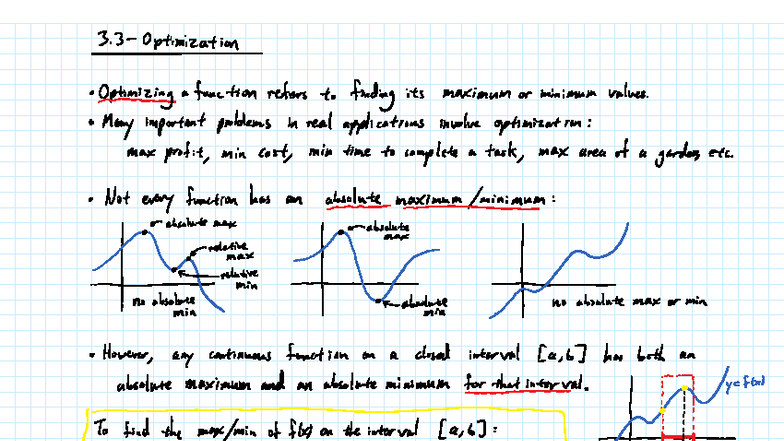 3.3 - Optimization
• Optimizing a function refers to finding its maximum or minimum values.
• Many important problems in real applications involve optimization:
max profit, min cost, min time to complete a task, max area of a garden, etc.
• Not every function has an absolute maximum/minimum:
absolute max
relative max
relative min
no absolute min
absolute max
absolute min
no absolute max or min
• However, any continuous function on a closed interval [a,b] has both an
absolute maximum and an absolute minimum for that interval.
y=f(x)
To find the max/min of f(x) on the interval [a,b]: